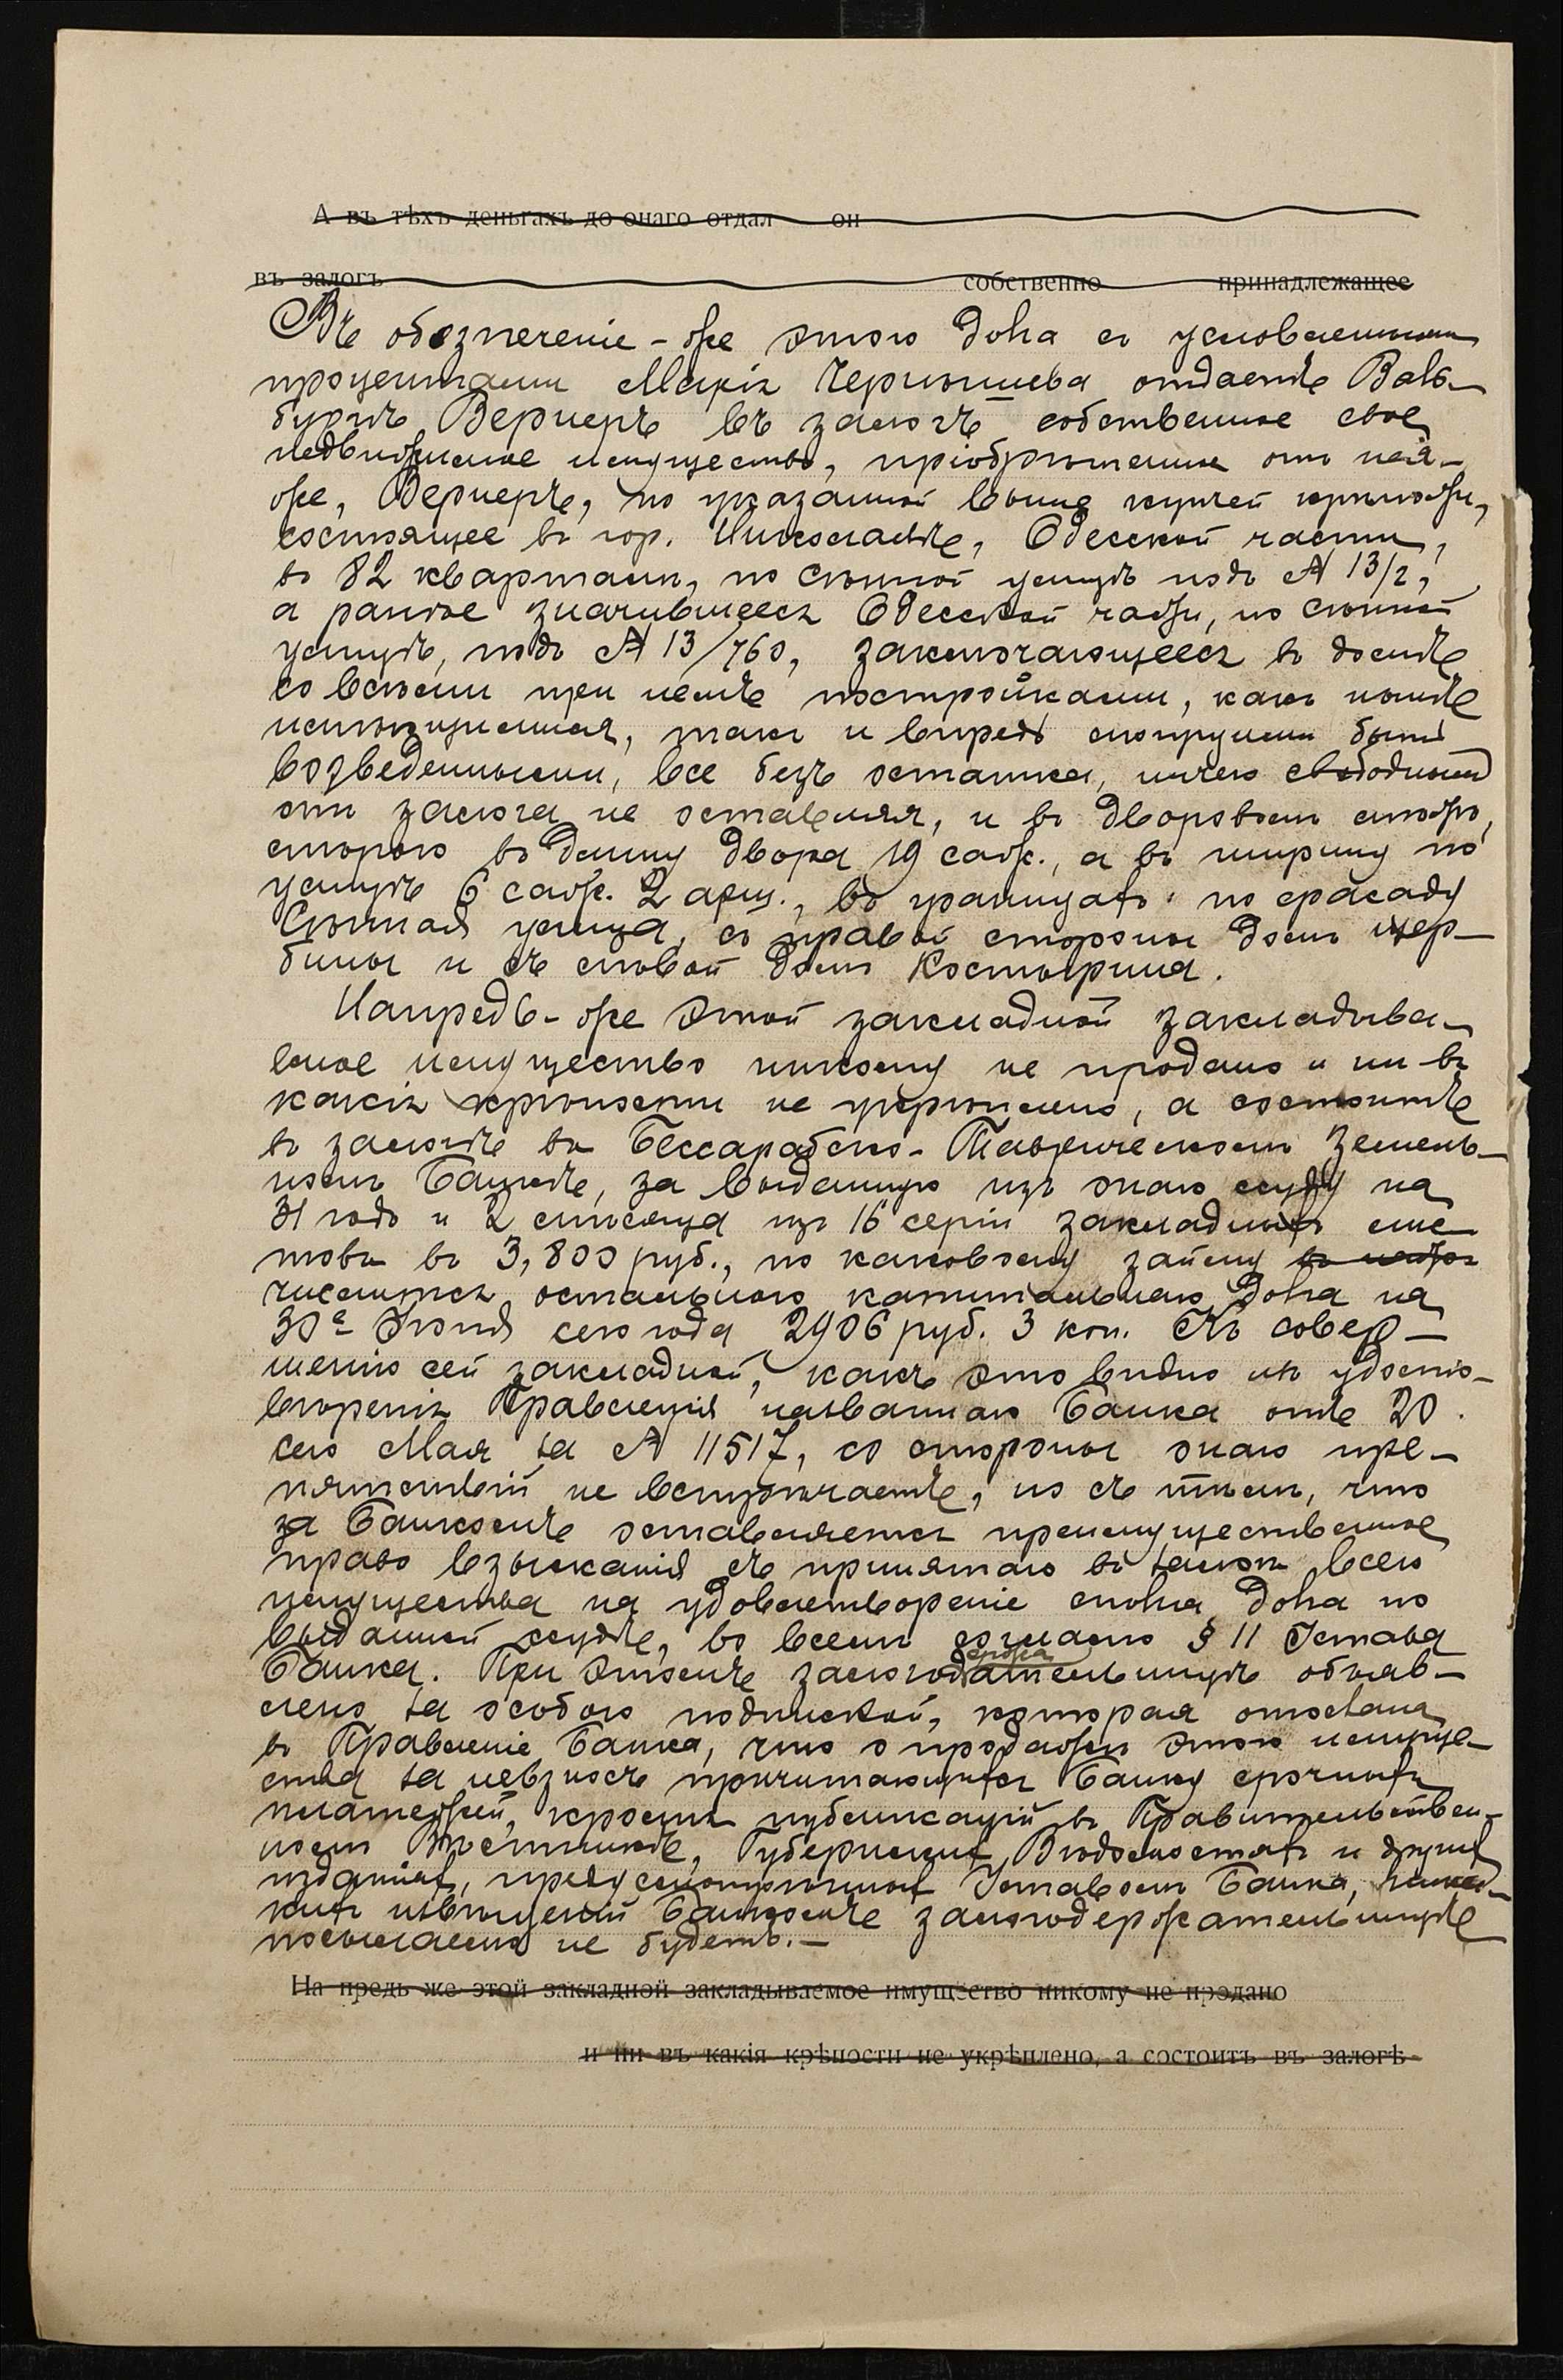 А въ тѣхъ деньгахъ до онаго отдал он
въ залогъ собственно принадлежащее
Въ обезпеченіе-же этого долга съ условленными
процентами Марія Чернышева отдаетъ Валь-
бургѣ Вернеръ въ залогъ собственное свое
недвижимое имущество, пріобрѣтенное отъ нея-
же, Вернеръ, по указанной выше купчей крѣпости,
состоящее въ гор. Николаевѣ, Одесской части,
въ 82 кварталѣ, по Сѣнной улицѣ подъ № 13/2,
а ранѣе значившееся Одесской части, по Сѣнной
улицѣ, подъ № 13/760, заключающееся въ домѣ
со всѣми при немъ постройками, какъ нынѣ
имѣющимися, такъ и впредь могущими быть
возведенными, все безъ остатка, ничего свободнымъ
отъ залога не оставляя, и въ дворовомъ мѣстѣ,
мѣрою въ длину двора 19 саж., а въ ширину по
улицѣ 6 саж. 2 арш., въ границахъ: по фасаду
Сѣнная улица, съ правой стороны домъ Щер-
бины и съ лѣвой домъ Костырина.
Напредь-же этой закладной закладыва-
емое имущество никому не продано и ни въ
какія крѣпости не укрѣплено, а состоитъ
въ залогѣ въ Бессарабско-Таврическомъ Земель-
номъ Банкѣ, за выданную изъ онаго ссуду на
31 годъ и 2 мѣсяца изъ 16 серіи закладныхъ лис-
товъ въ 3,800 руб., по каковому займу
числится остальнаго капитальнаго долга на
30е Іюня сего года 2906 руб. 3 коп. Къ совер-
шенію сей закладной, какъ это видно изъ удосто-
вѣренія Правленія названнаго Банка отъ 20
сего Мая за № 11517, со стороны онаго пре-
пятствій не встрѣчаетъ, но съ тѣмъ, что
за Банкомъ оставляется преимущественное
право взысканія съ принятаго въ залогъ всего
имущества на удовлетвореніе долга по
выданной ссудѣ, во всемъ согласно § 11 Устава
Банка. При этомъ залогодательницѣ объяв-
лено за особою подпиской, которая отослана
въ Правленіе Банка, что о продажѣ этого имуще-
ства за невзносъ причитающихся Банку срочныхъ
платежей, кромѣ публикацій въ Правительствен-
номъ Вѣстникѣ, Губернскихъ Вѣдомостяхъ и другихъ
изданіяхъ, предусмотрѣнныхъ Уставомъ Банка, ника-
кихъ извѣщеній Банкомъ залогодержательницѣ
посылаемо не будетъ.—
На предь же этой закладной закладываемое имущество никому не продано
и ни въ какія крѣпости не укрѣплено, а состоитъ въ залогѣ